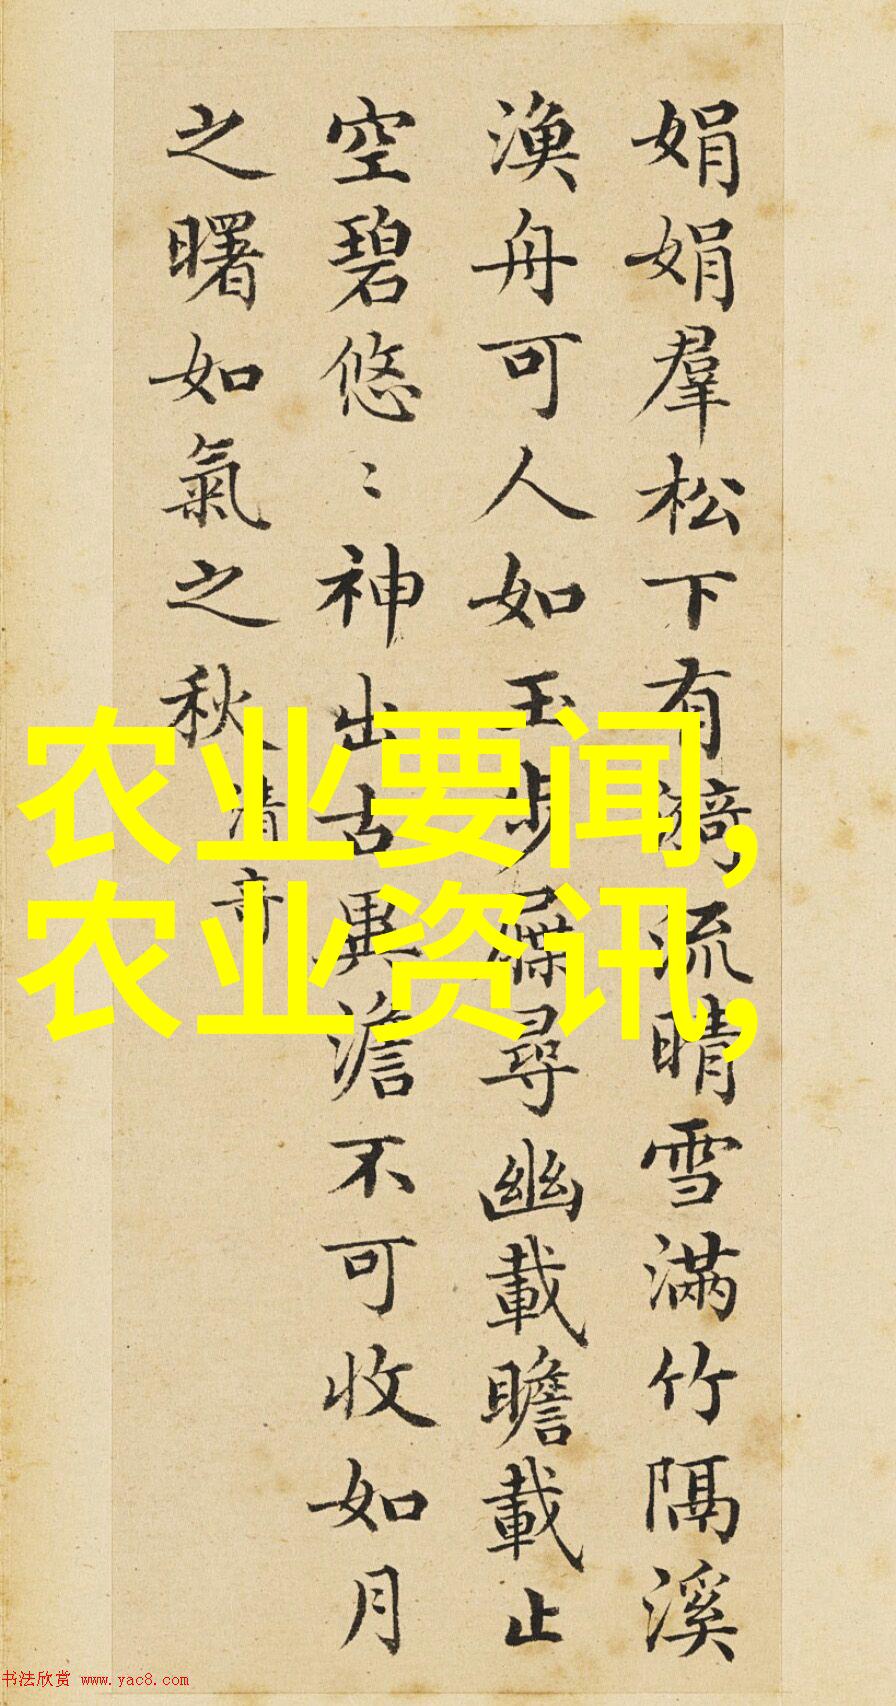 娟娟羣松下有漪流晴雪滿竹隔溪
渔舟可人如玉步屧尋幽載瞻載止
空碧悠〻神出古異澹不可收如月
之曙如氣之秋
清奇
农业要闻,
农业资讯,
书法欣赏 www.yac8.com